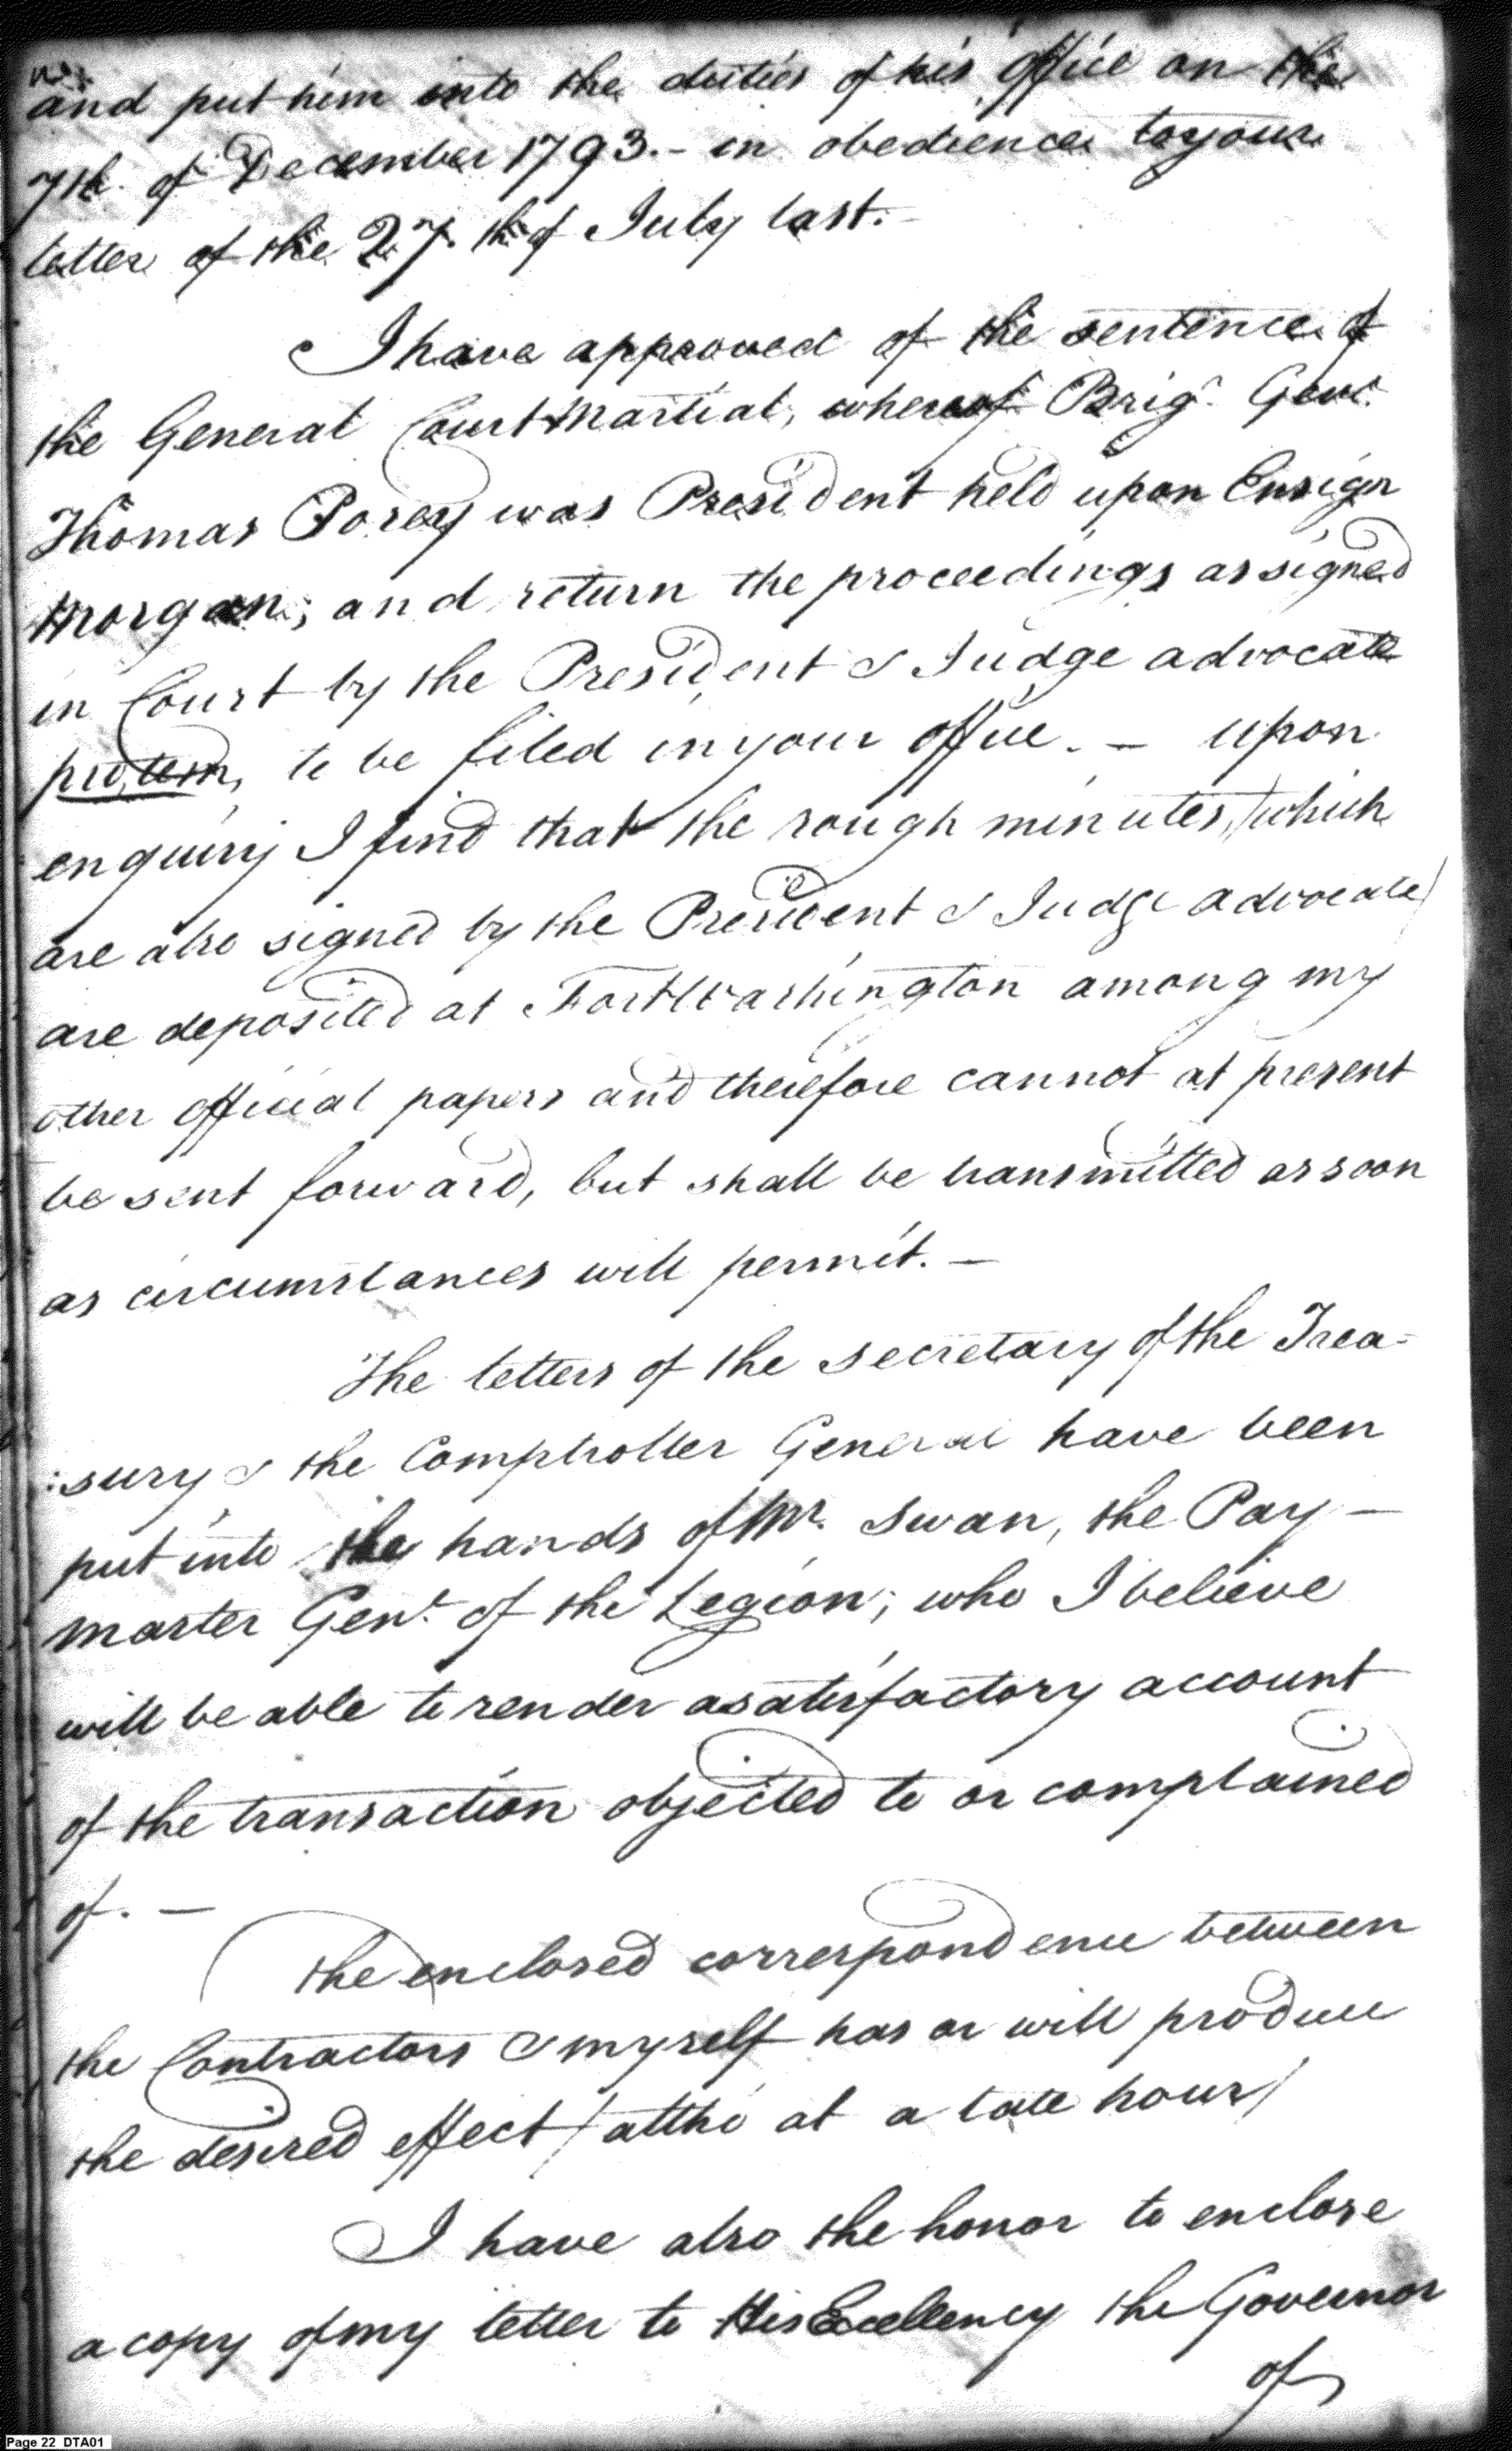 and put him into the duties of his office on the
7th. of December 1793.- in obedience to your
letter of the 27.th of July last.-
I have approved of the sentence of
the General Court Martial, whereof Brigr. Genl.
Thomas Posey was President held upon Ensign
Morgan; and return the proceedings as signed
in Court by the President & Judge advocate
protem, to be filed in your office. - upon
enquiry I find that the rough minutes, /which
are also signed by the President & Judge advocate/
are deposited at Fort Washington among my
other official papers and therefore cannot at present
be sent forward, but shall be transmitted as soon
as circumstances will permit. -
The letters of the secretary of the Trea-
:sury & the Comptroller General have been
put into the hands of Mr. Swan, the Pay-
master Genl. of the Legion; who I believe
will be able to render a satisfactory account
of the transaction objected to or complained
of. -
The enclosed correspondence between
the Contractors & myself has or will produce
the desired effect /altho' at a late hour/
I have also the honor to enclose
a copy of my letter to His Excellency the Governor
of
Page 22 DTA01